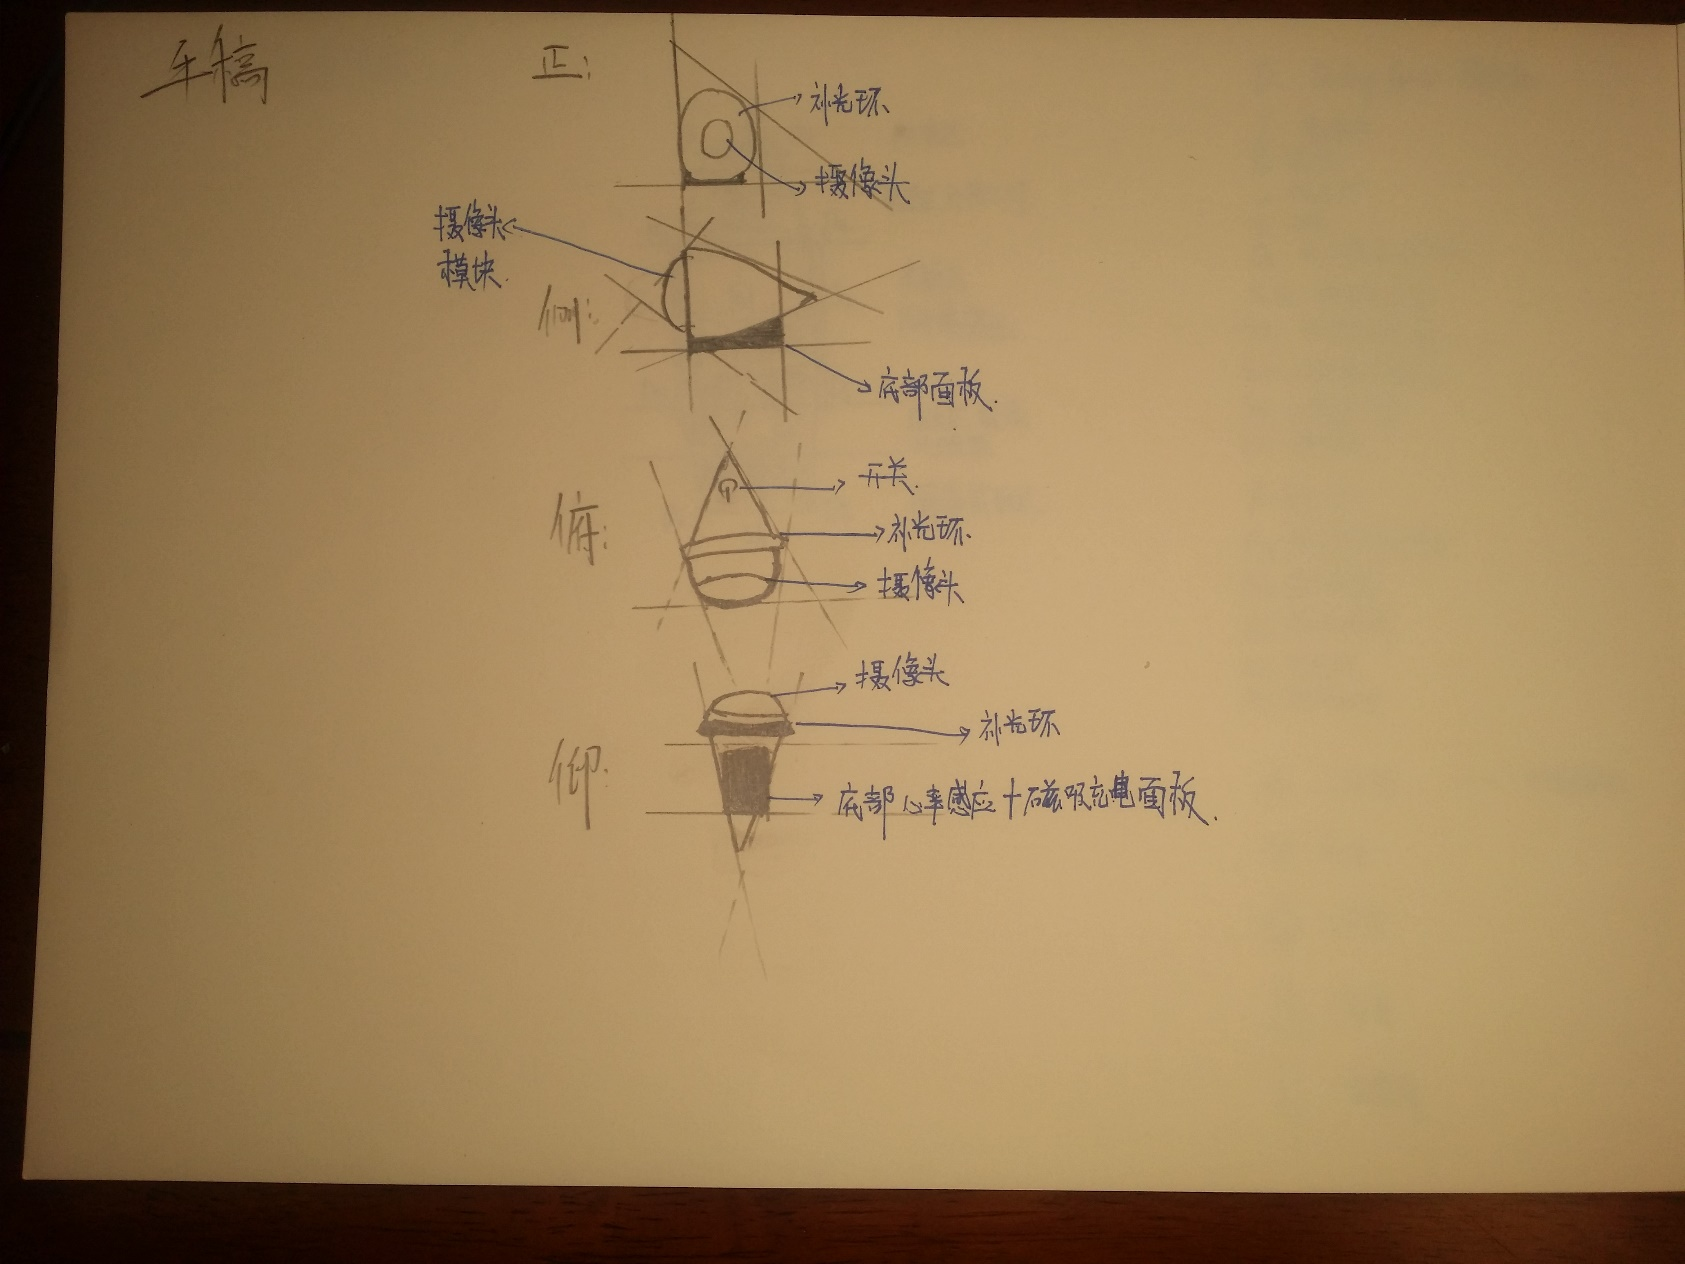 草稿
正:
补光环
摄像头
摄像头
模块.
侧:
底部面板.
俯:
开关.
补光环.
摄像头
仰:
摄像头
补光环
底部心率感应+磁吸充电面板.